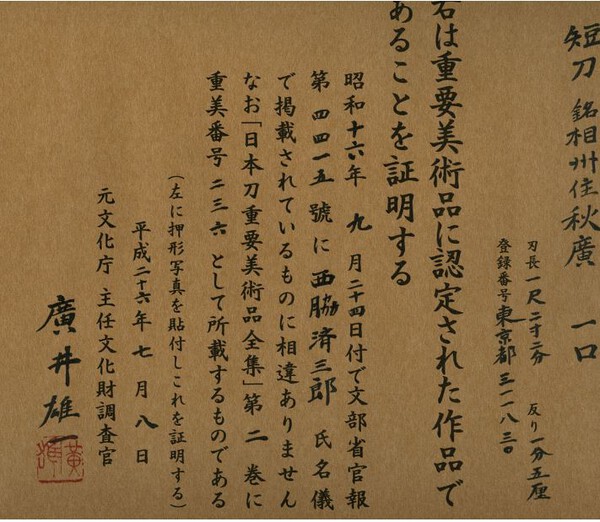 短刀 銘相州住秋廣 一口
刃長一尺二寸二分 反り一分五厘
登録番号東京都三一一八三〇
右は重要美術品に認定された作品で
あることを証明する
昭和十六年九月二十四日付で文部省官報
第四四一五號に西脇済三郎氏名儀
で掲載されているものに相違ありません
なお「日本刀重要美術品全集」第二巻に
重美番号二三六として所載するものである
(左に押形写真を貼付しこれを証明する)
平成二十六年七月八日
元文化庁 主任文化財調査官
廣井雄一